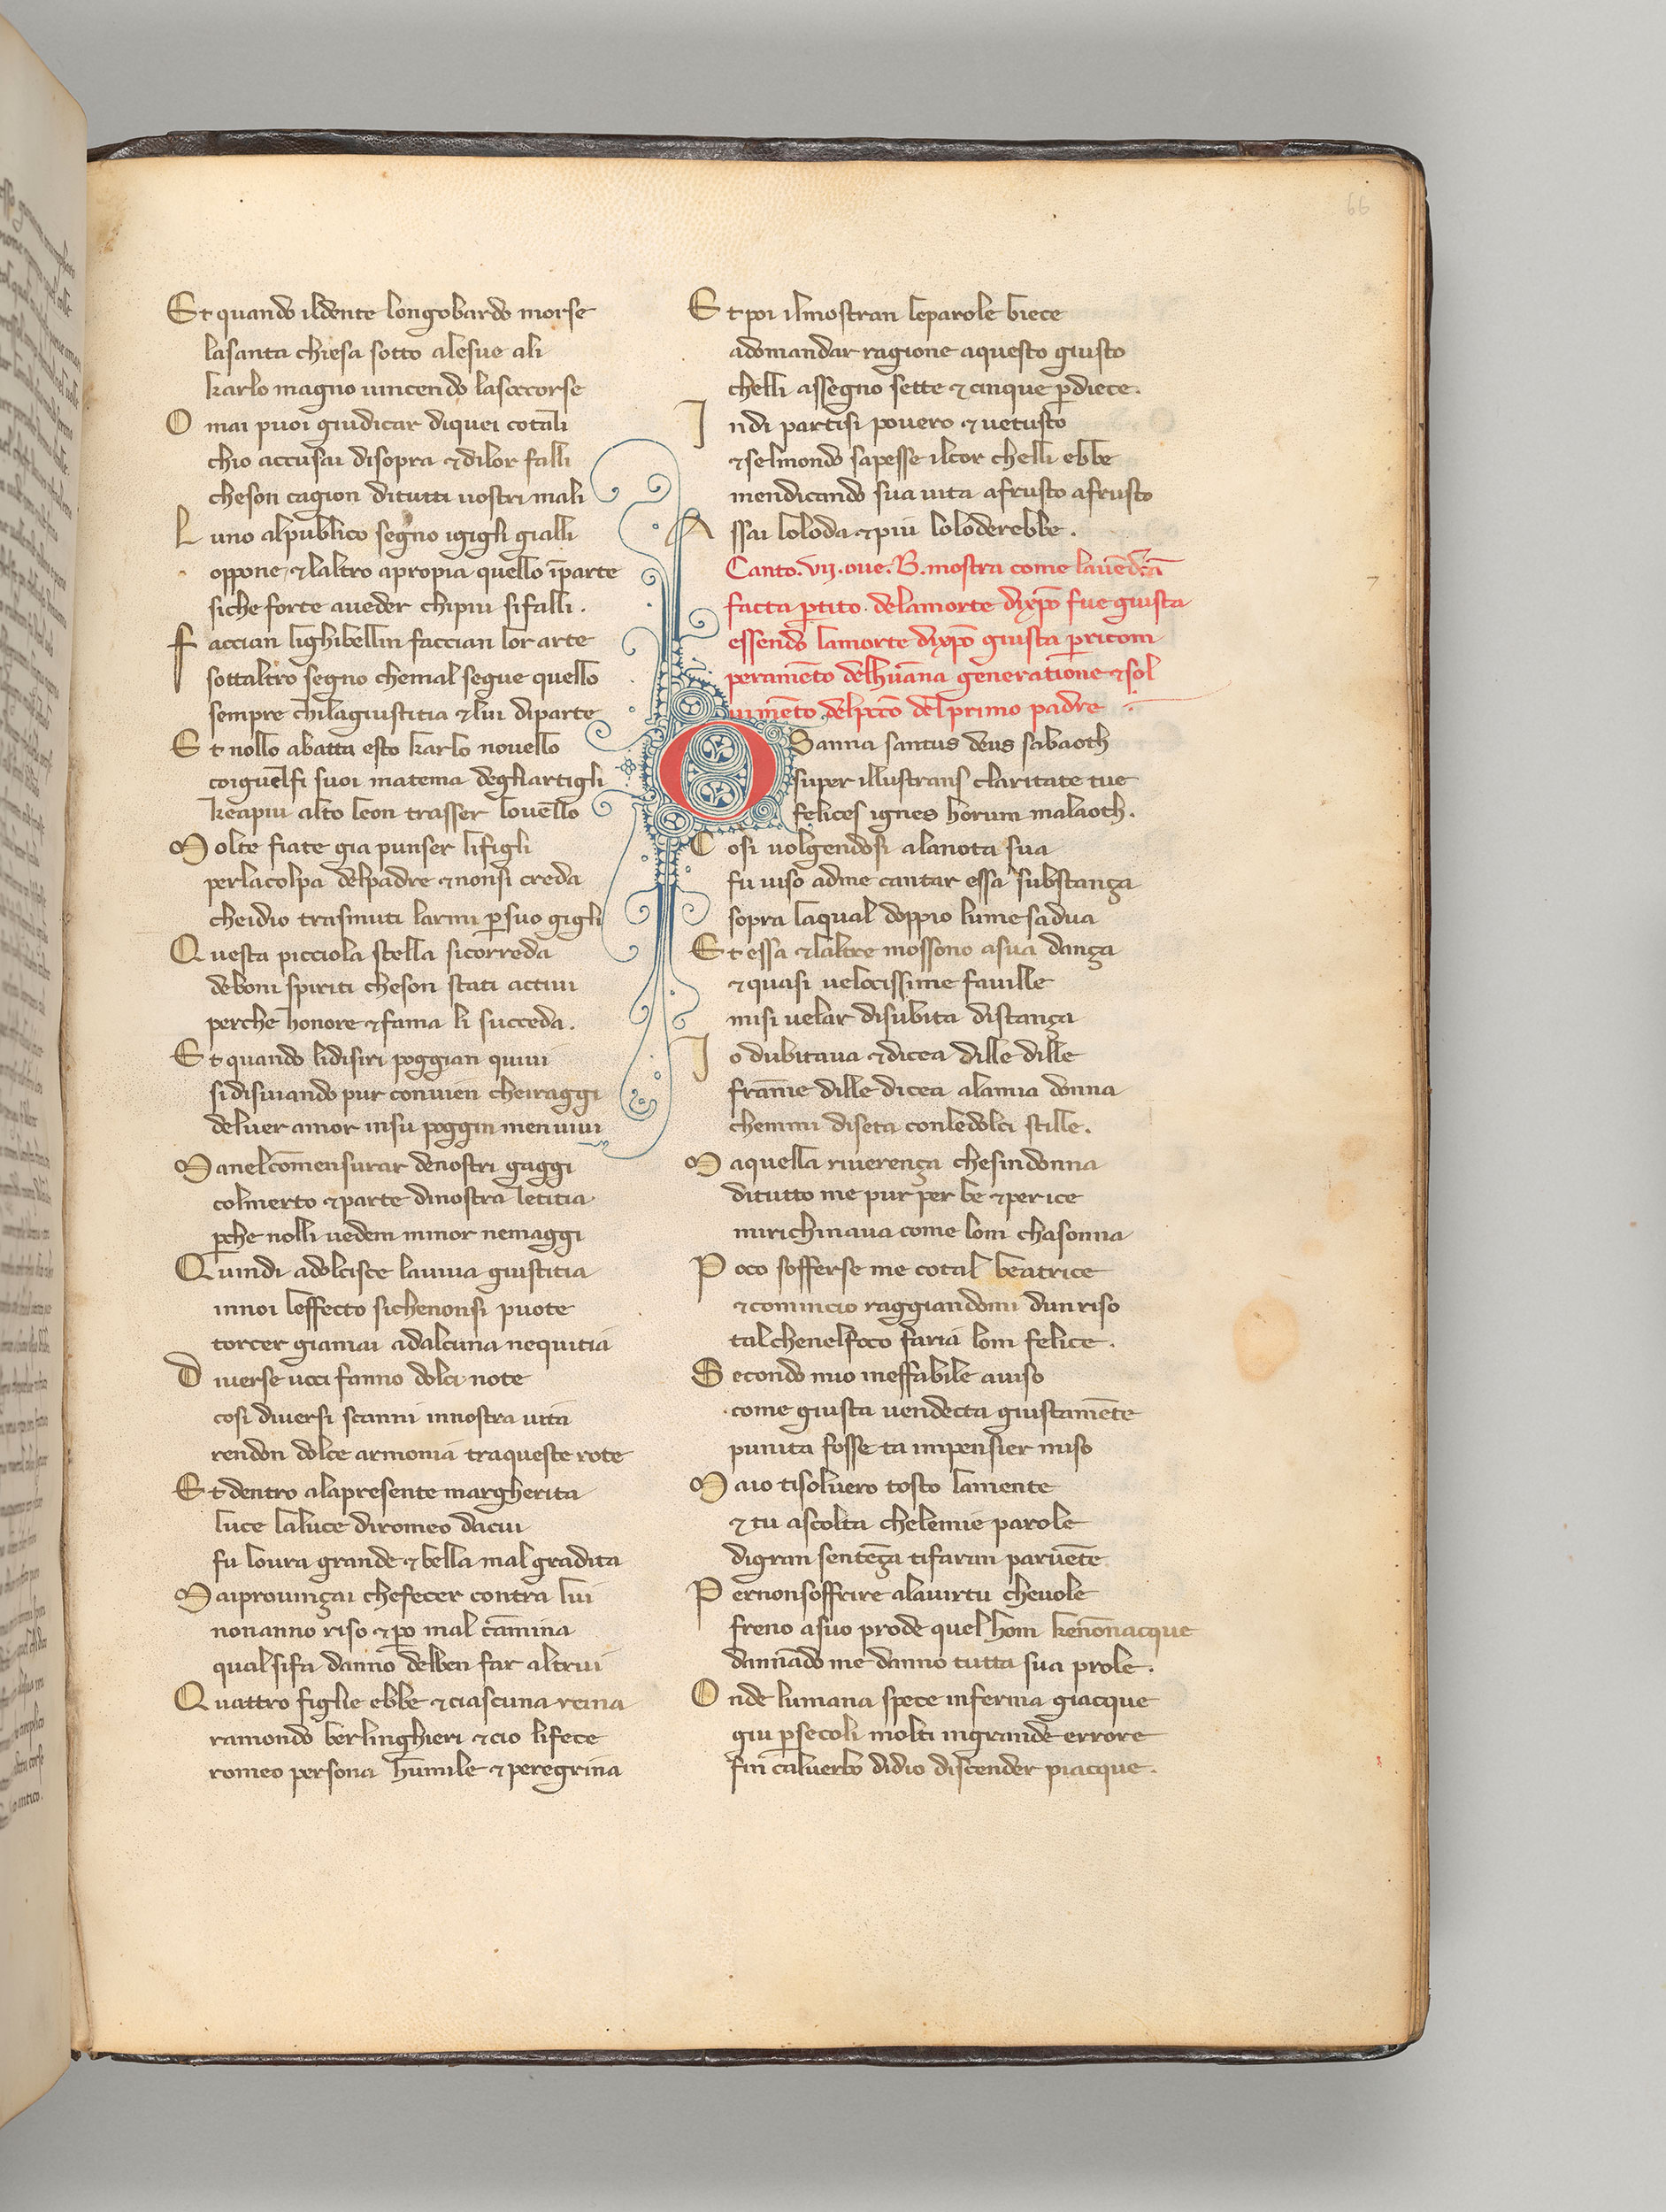 66
Et quando ildente longobardo morse
lasanta chiesa sotto alesue ali
karlo magno uincendo lasoccorse
O mai puoi giudicar diquei cotali
chio accusai disopra ⁊ dilor falli
cheson cagion ditutti uostri mali
L uno alpublico segno igigli gialli
oppone ⁊ laltro apropia quello īparte
siche forte aueder chipiu sifalli .
F accian lighibellin faccian lor arte
sottaltro segno chemal segue quello
sempre chilagiustitia ⁊ lui diparte
Et nollo abatta esto karlo nouello
coiguelfi suoi matema degliartigli
keapiu alto leon trasser louello
M olte fiate gia punser lifigli
perlacolpa delpadre ⁊ nonsi creda
cheidio trasmuti larmi ꝑsuo gigli
Q uesta picciola stella sicorreda
deboni spiriti cheson stati actiui
perche honore ⁊ fama li succeda .
Et quando lidisiri poggian quiui
sidisuiando pur conuien cheiraggi
deluer amor insu poggin menuiui
M anelcōmensurar denostri gaggi
colmerto ⁊ parte dinostra letitia
ꝑche nolli uedem minor nemaggi
Q uindi adolcisce lauiua giustitia
innoi leffecto sichenonsi puote
torcer giamai adalcuna nequitia
D iuerse uoci fanno dolci note
cosi diuersi scanni innostra uita
rendon dolce armonia traqueste rote
Et dentro alapresente margherita
luce laluce diromeo dacui
fu loura grande ⁊ bella mal gradita
M aiprouinçai chefecer contra lui
nonanno riso ⁊ ꝑo mal cāmina
qual sifa danno delben far altrui
Q uattro figlie ebbe ⁊ ciascuna reina
ramondo berlinghieri ⁊ cio lifece
romeo persona hūmile ⁊ peregrina
Et poi ilmostran leparole biece
adomandar ragione aquesto giusto
chelli assegno sette ⁊ cinque ꝑdiece .
I ndi partisi pouero ⁊ uetusto
⁊ selmondo sapesse ilcor chelli ebbe
mendicando sua uita afrusto afrusto
A ssai loloda ⁊ piu loloderebbe .
Canto . vij . oue . B . mostra come lauēdcā
facta ꝑtito . delamorte dixpō fue giusta
essendo lamorte dixpō giusta ꝑricom
peramēto delhūana generatione ⁊ sol
uimēto delpcc̄o del primo padre
O Sanna santus deus sabaoth
super illustrans claritate tue
felices ignes horum malaoth .
C osi uolgendosi alanota sua
fu uiso adme cantar essa substança
sopra laqual doppio lume sadua
Et essa ⁊ laltre mossono asua dança
⁊ quasi uelocissime fauille
misi uelar disubita distança
I o dubitaua ⁊ dicea dille dille
frāme dille dicea alamia donna
chemmi diseta conledolci stille .
M aquella riuerença chesindonna
ditutto me pur per be ⁊ per ice
mirichinaua come lom chasonna
P oco sofferse me cotal beatrice
⁊ comincio raggiandomi dunriso
tal chenelfoco faria lom felice .
S econdo mio ineffabile auiso
come giusta uendecta giustamēte
punita fosse ta inpensier miso
M aio tisoluero tosto lamente
⁊ tu ascolta chelemie parole
digran sentēça tifaran paruēte
P ernonsoffrire alauirtu cheuole
freno asuo prode quel hom kenōnacque
dannādo me danno tutta sua prole .
O nde lumana spece inferma giacque
giu ꝑsecoli molti ingrande errore
fin caluerbo didio discender piacque .